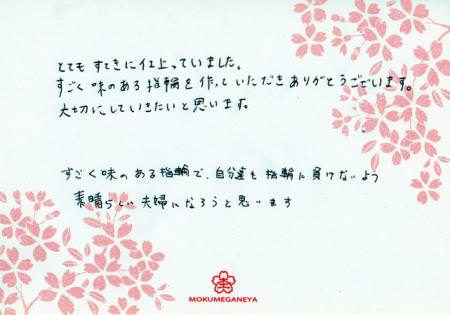 とても すてきに仕上っていました。
すごく 味のある指輪を作っていただきありがとうございます。
大切にしていきたいと思います。
すごく味のある指輪で、自分達も指輪に負けないよう
素晴らしい夫婦になろうと思います
杢
MOKUMEGANEYA